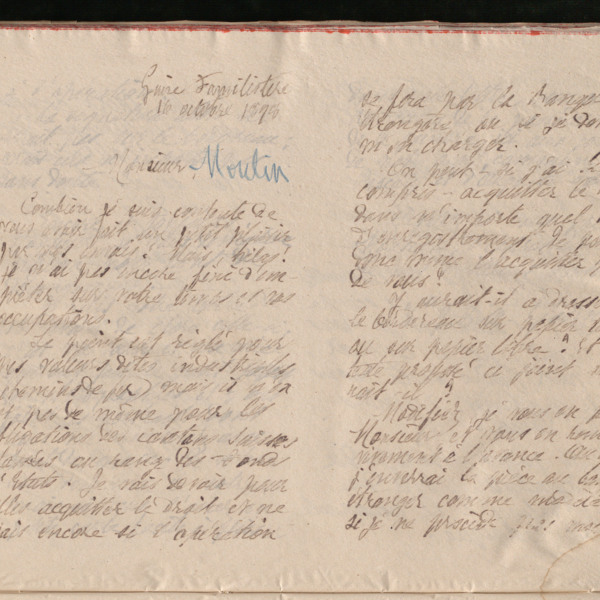 Guise Familistère
16 octobre 1898
Monsieur Moutin
Combien je suis contente de
vous avoir fait un petit plaisir
par mes envois! Mais, hélas!
je n'ai pas encore fini d'em-
piéter sur votre temps et vos
occupations.
Le point est réglé pour
les valeurs dites industrielles
(chemins de fer) mais il n'en
est pas de même pour les
obligations des cantons suisses
classées au rang des fonds
d'États. Je vais devoir pour
elles acquitter le droit et ne
sais encore si l'opération
se fera par la banque
étrangère ou si je dois
m'en charger.
On peut - si j'ai
compris - acquitter le
dans n'importe quel
d'enregistrement de
de vous?
Y aurait-il à dresser
le bordereau sur papier
ou sur papier libre? Et
texte proposé ce
il?
Monsieur, je vous en
Monsieur, et vous en
vivement à l'avance.
j'enverrai la pièce au
étranger comme
si je ne procède pas